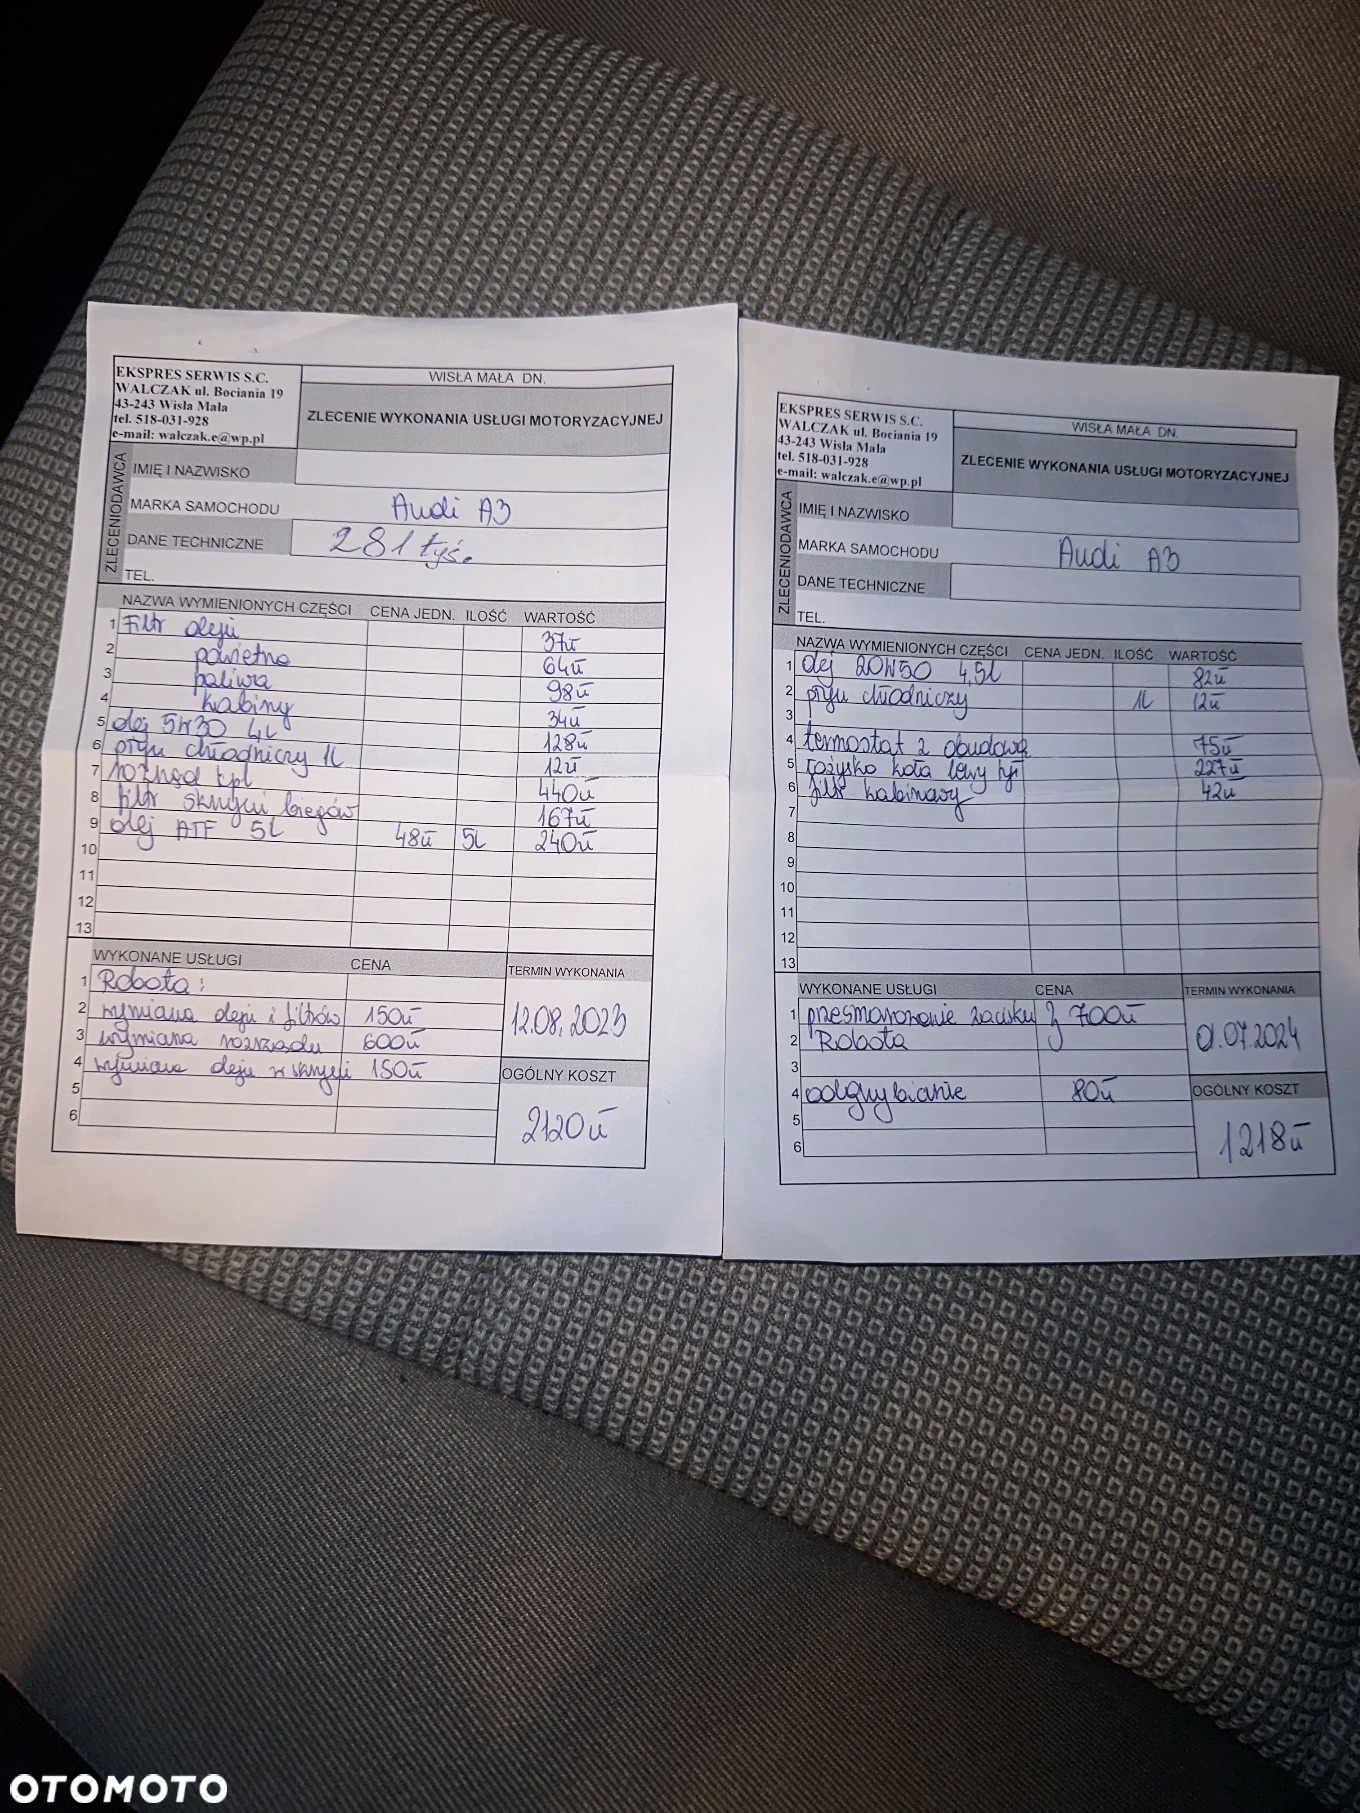 EKSPRES SERWIS S.C.
WALCZAK ul. Bociania 19
43-243 Wisła Mała
tel. 518-031-928
e-mail: walczak.e@wp.pl
WISŁA MAŁA DN.
ZLECENIE WYKONANIA USŁUGI MOTORYZACYJNEJ
ZLECENIODAWCA
IMIĘ I NAZWISKO
MARKA SAMOCHODU Audi A3
DANE TECHNICZNE 281 tyś.
TEL.
NAZWA WYMIENIONYCH CZĘŚCI CENA JEDN. ILOŚĆ WARTOŚĆ
1 Filtr oleju 37zł
2 powietrza 64zł
3 paliwa 98zł
4 kabiny 34zł
5 olej 5W30 4L 128zł
6 płyn chłodniczy 1L 12zł
7 rozrząd kpl 440zł
8 filtr skrzyni biegów 167zł
9 olej ATF 5L 48zł 5L 240zł
10
11
12
13
WYKONANE USŁUGI CENA TERMIN WYKONANIA
1 Robota:
2 wymiana oleju i filtrów 150zł
12.08.2023
3 wymiana rozrządu 600zł
4 wymiana oleju w skrzyni 150zł
OGÓLNY KOSZT
5
6
2120zł
EKSPRES SERWIS S.C.
WALCZAK ul. Bociania 19
43-243 Wisła Mała
tel. 518-031-928
e-mail: walczak.e@wp.pl
WISŁA MAŁA DN.
ZLECENIE WYKONANIA USŁUGI MOTORYZACYJNEJ
ZLECENIODAWCA
IMIĘ I NAZWISKO
MARKA SAMOCHODU Audi A3
DANE TECHNICZNE
TEL.
NAZWA WYMIENIONYCH CZĘŚCI CENA JEDN. ILOŚĆ WARTOŚĆ
1 olej 20W50 4,5L 82zł
2 płyn chłodniczy 1L 12zł
3
4 termostat z obudową 75zł
5 łożysko koła lewy tył 227zł
6 filtr kabinowy 42zł
7
8
9
10
11
12
13
WYKONANE USŁUGI CENA TERMIN WYKONANIA
1 przesmarowanie zacisku 700zł
2 Robota
01.07.2024
3
4 odgrzybianie 80zł
OGÓLNY KOSZT
5
6
1218zł
OTOMOTO